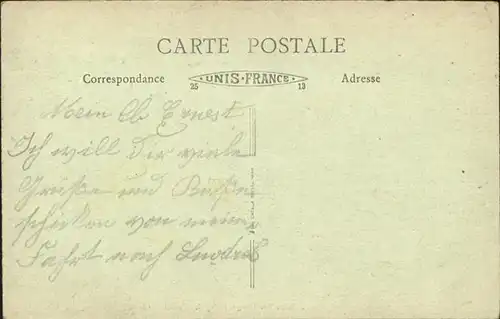 CARTE POSTALE
Correspondance
UNIS-FRANCE
25 13
Adresse
Mein lb Ernest
Ich will Dir viele
Grüße und
schicken von meiner
Fahrt nach